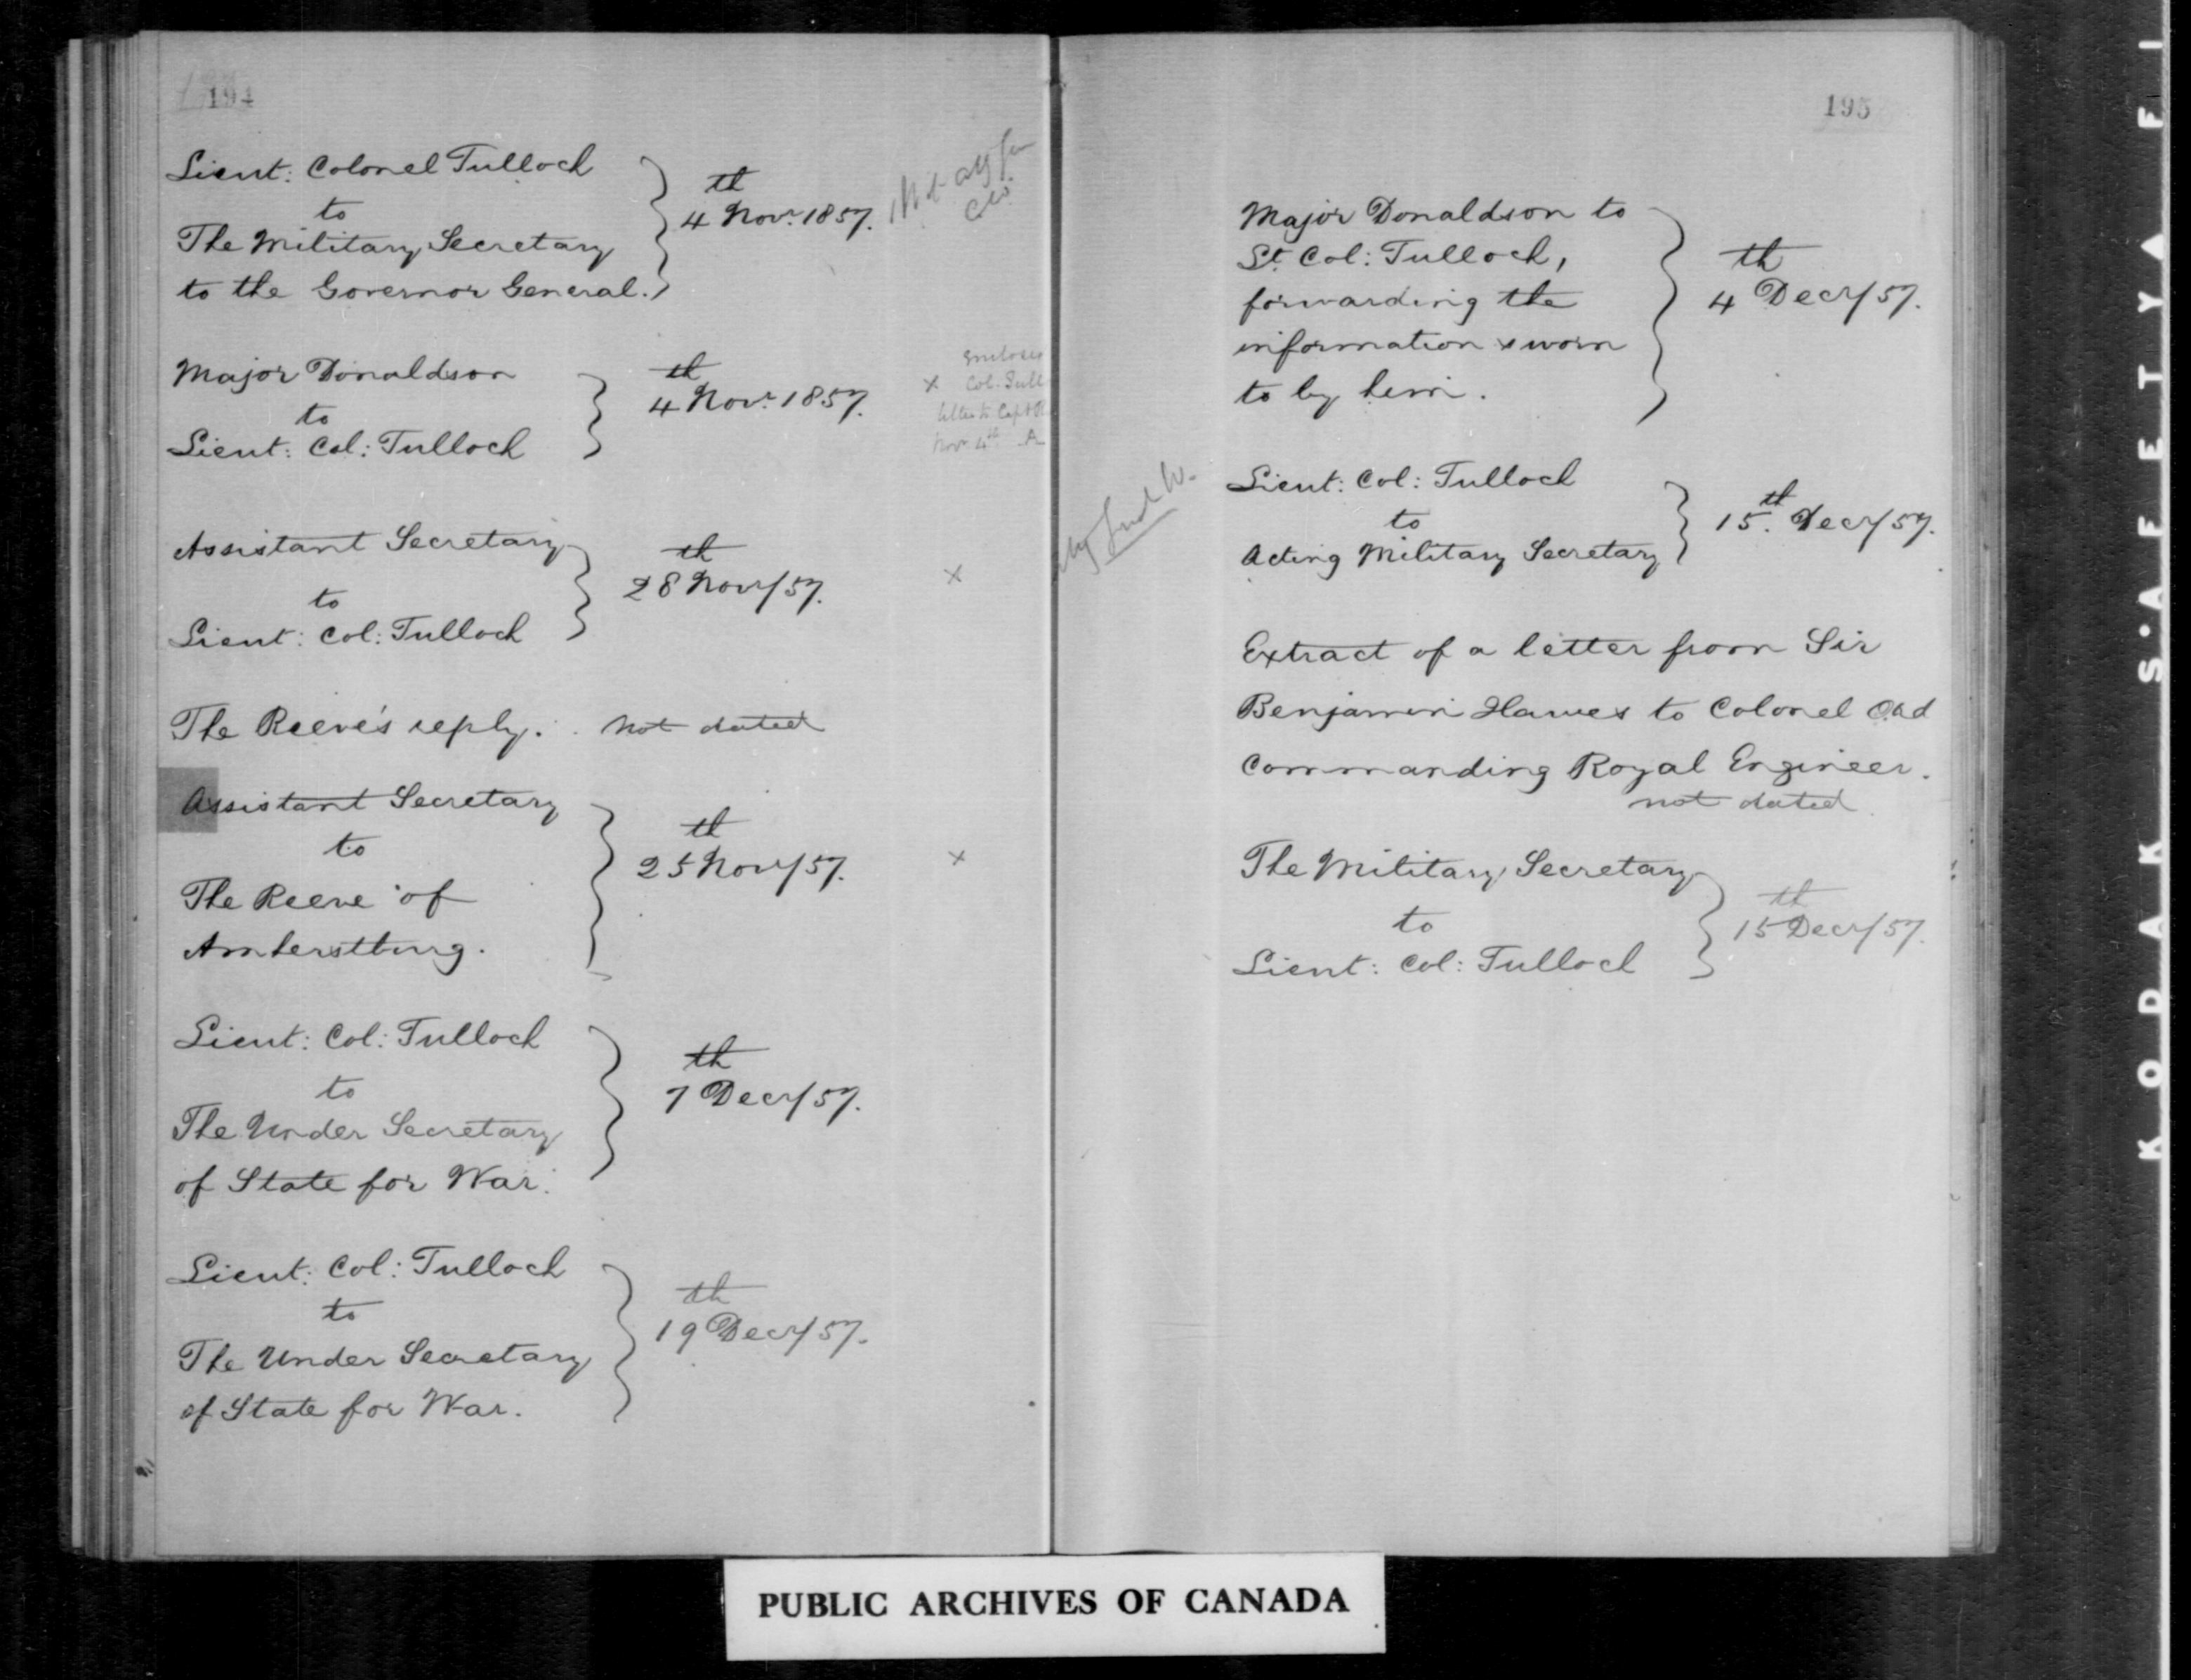 194
Lieut: Colonel Tulloch
to
The Military Secretary
to the Governor General.
4th Novr. 1857.
Major Donaldson
to
Lieut: Col: Tulloch
4th Novr. 1857.
x Enclosed
Col. Tull
letter to Capt
Novr 4th A
Assistant Secretary
to
Lieut: Col: Tulloch
28th Novr/57.
x
The Reeve's reply. not dated
Assistant Secretary
to
The Reeve of
Amherstburg.
25th Novr/57.
x
Lieut: Col: Tulloch
to
The Under Secretary
of State for War.
7th Decr/57.
Lieut: Col: Tulloch
to
The Under Secretary
of State for War.
19th Decr/57.
195
Major Donaldson to
Lt. Col: Tulloch,
forwarding the
information sworn
to by him.
4th Decr/57.
Lieut: Col: Tulloch
to
Acting Military Secretary
15th. Decr/57.
Extract of a letter from Sir
Benjamin Hawes to Colonel Ord
Commanding Royal Engineer.
not dated
The Military Secretary
to
Lieut: Col: Tulloch
15th Decr/57.
PUBLIC ARCHIVES OF CANADA
KODAK S.AFETY